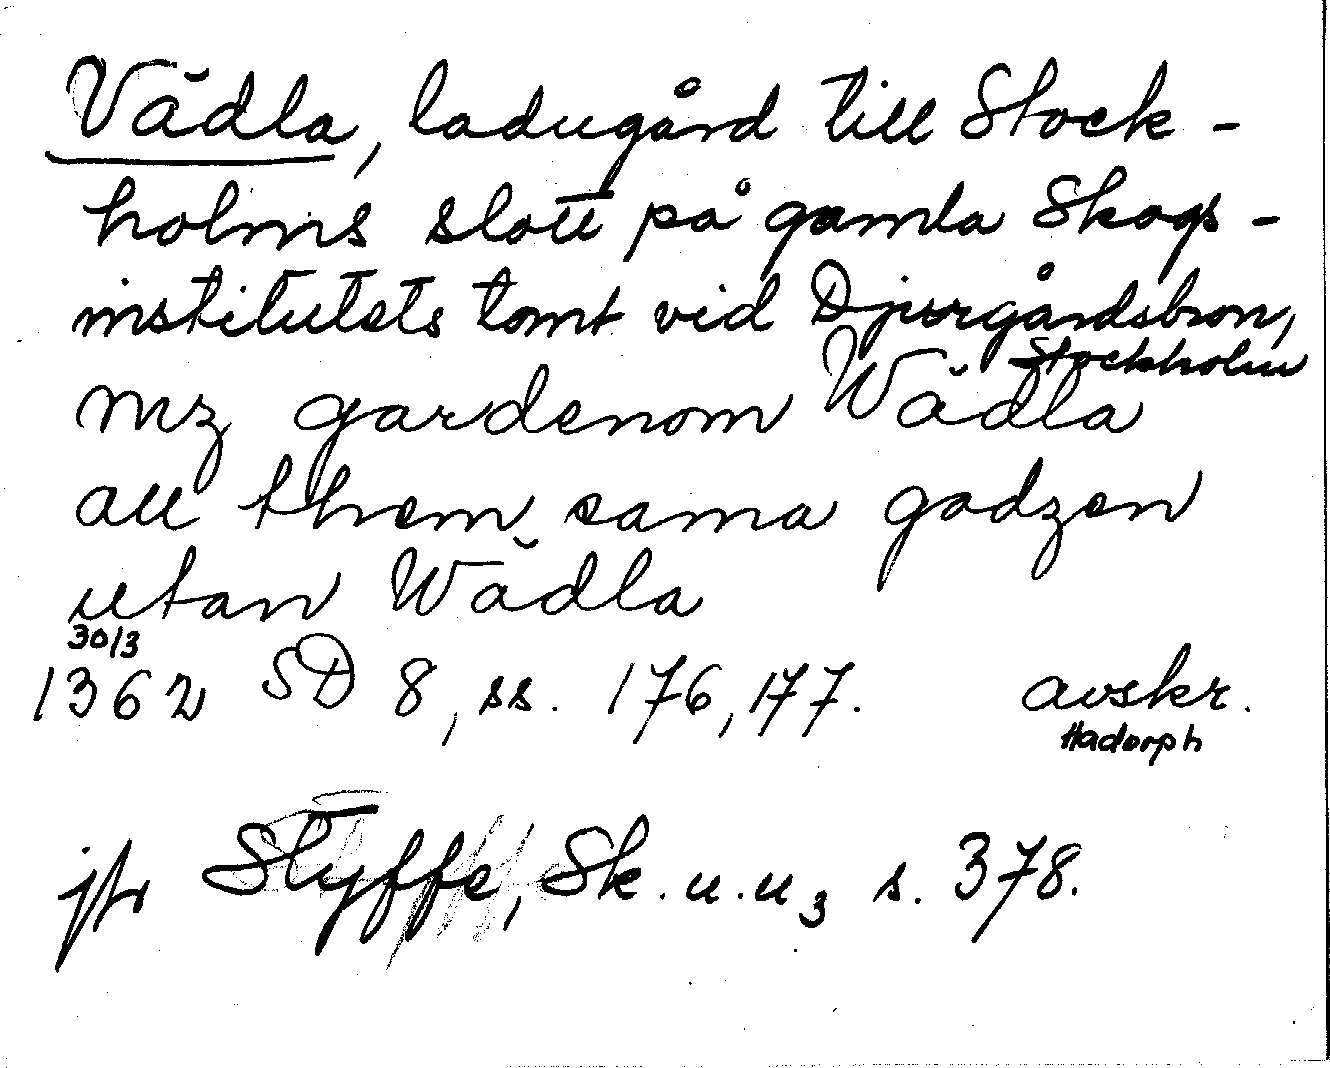 Vădla, ladugård till Stock-
holms slott på gamla Skogs-
institutets tomt vid Djurgårdsbron,
Stockholm
mz gardenom Wădla
all them sama godzen
utan Wădla
30/3
1362 SD 8, ss. 176, 177. avskr.
Hadorph
jfr Styffe, Sk. u. u₃ s. 378.